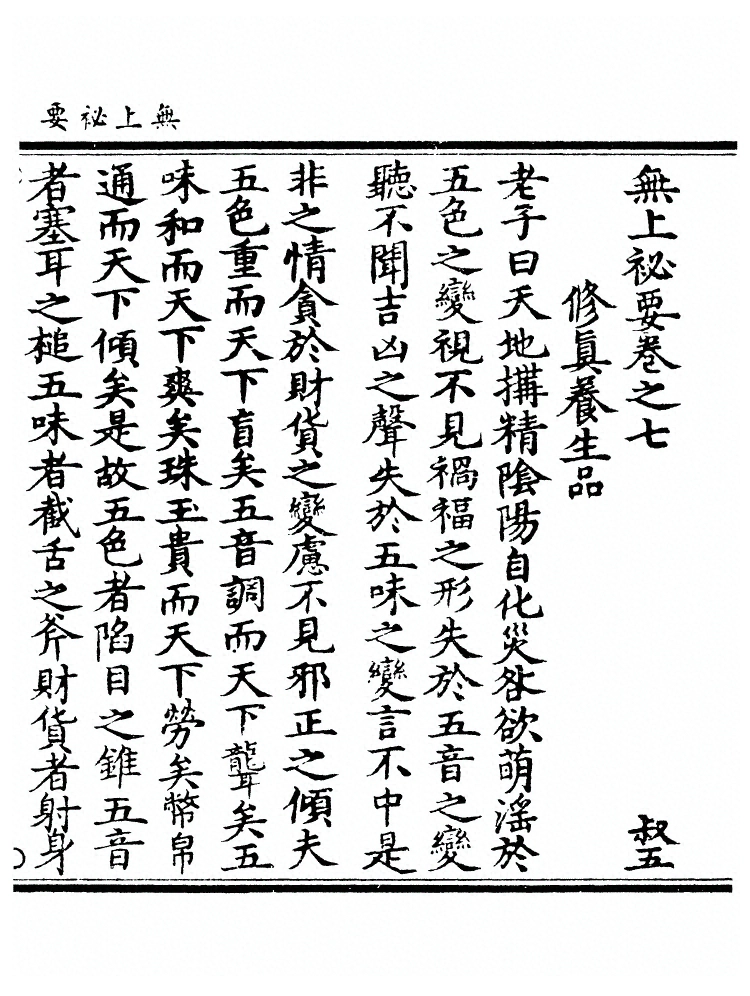 無上祕要
無上祕要卷之七
叔五
修眞養生品
老子曰天地搆精陰陽自化災咎欲萌滛於
五色之變視不見禍福之形失於五音之變
聽不聞吉凶之聲失於五味之變言不中是
非之情貪於財貨之變慮不見邪正之傾夫
五色重而天下盲矣五音調而天下聾矣五
味和而天下爽矣珠玉貴而天下勞矣幣帛
通而天下傾矣是故五色者陷目之錐五音
者塞耳之槌五味者截舌之斧財貨者射身